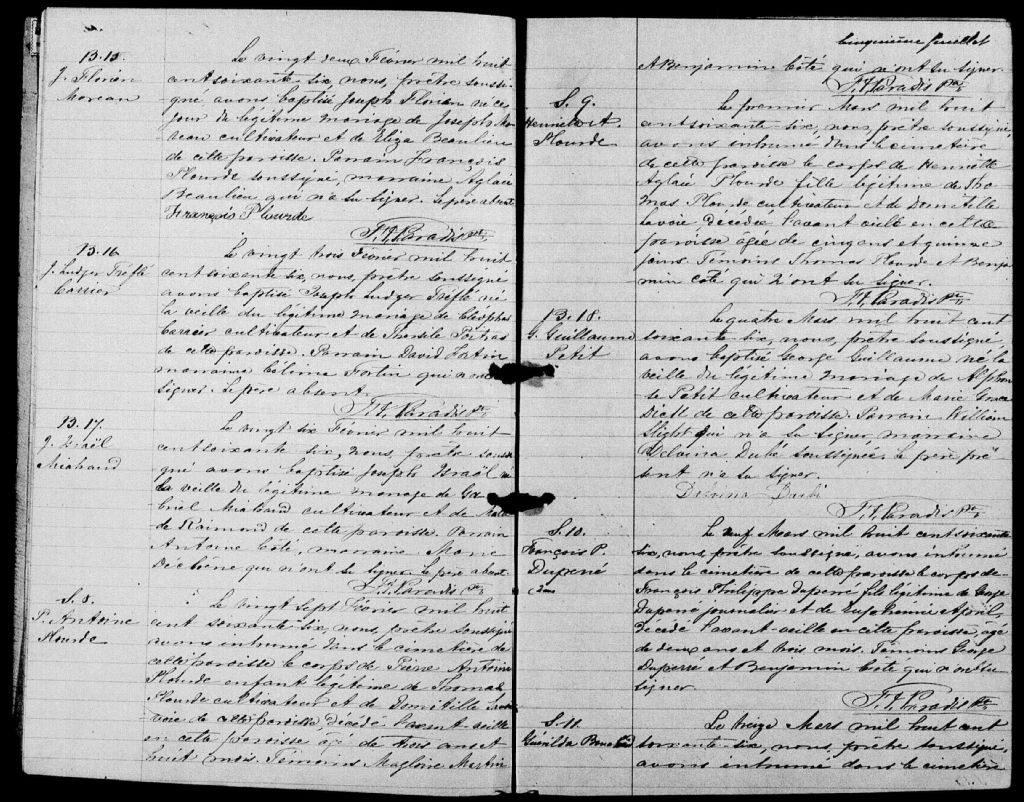 B.15.
J. Florien
Moreau
Le vingt deux Février mil huit
cent soixante six, nous, prêtre soussi-
gné avons baptisé Joseph Florien né ce
jour du légitime mariage de Joseph Mo-
reau cultivateur et de Eliza Beaulieu
de cette paroisse. Parrain François
Plourde soussigné, marraine Aglaé
Beaulieu qui n'a su signer. Le père absent
François Plourde
Ptre
B.16
J. Ludger Trefflé
Carrier
Le vingt trois Février mil huit
cent soixante six, nous, prêtre soussigné
avons baptisé Joseph Ludger Trefflé né
la veille du légitime mariage de Cléophas
Carrier cultivateur et de Thersile Poitras
de cette paroisse. Parrain David Fortin
marraine Celina Fortin qui n'ont su
signer. Le père absent.
Paradis Ptre
B.17.
J. Israël
Michaud
Le vingt six Février mil huit
cent soixante six, nous, prêtre soussi-
gné avons baptisé Joseph Israël né
la veille du légitime mariage de Ga-
briel Michaud cultivateur et de
de Raimond de cette paroisse. Parrain
Antoine Côté, marraine Marie
qui n'ont su signer. Le père absent
Paradis Ptre
S. 8.
P. Antoine
Plourde
Le vingt sept Février mil huit
cent soixante-six, nous, prêtre soussigné
avons inhumé dans le cimetière de
cette paroisse le corps de Pierre Antoine
Plourde enfant légitime de Thomas
Plourde cultivateur et de Domitille Sa-
voie de cette paroisse, décédé l'avant veille
en cette paroisse âgé de trois ans et
huit mois. Témoins Magloire Martin
Cinquième feuillet
et Benjamin Côté qui n'ont su signer.
Paradis Ptre
S. 9.
Henriette A.
Plourde
Le premier Mars mil huit
cent soixante-six, nous, prêtre soussigné,
avons inhumé dans le cimetière
de cette paroisse le corps de Henriette
Aglaé Plourde fille légitime de Tho-
mas Plourde cultivateur et de Domitille
Savoie, décédée l'avant veille en cette
paroisse âgée de cinq ans et quinze
jours. Témoins Thomas Plourde et Benja-
min Côté qui n'ont su signer.
Paradis Ptre
B.18.
G. Guillaume
Petit
Le quatre Mars mil huit cent
soixante-six, nous, prêtre soussigné,
avons baptisé George Guillaume né la
veille du légitime mariage de Alphon-
se Petit cultivateur et de Marie Grace
de cette paroisse. Parrain William
Slight qui n'a su signer marraine
Delvina Dubé soussignée, le père pré-
sent n'a su signer.
Delvina Dubé
Paradis Ptre
S. 10.
François P.
Duperré
Le neuf Mars mil huit cent soixante
six, nous, prêtre soussigné, avons inhumé
dans le cimetière de cette paroisse le corps de
François Philippe Duperré fils légitime de George
Duperré journalier et de Euphemie April,
décédé l'avant-veille en cette paroisse, âgé
de deux ans et trois mois. Témoins George
Duperré et Benjamin Côté qui n'ont su
signer.
Paradis Ptre
S. 11.
Le treize Mars mil huit cent
soixante-six, nous, prêtre soussigné,
avons inhumé dans le cimetière